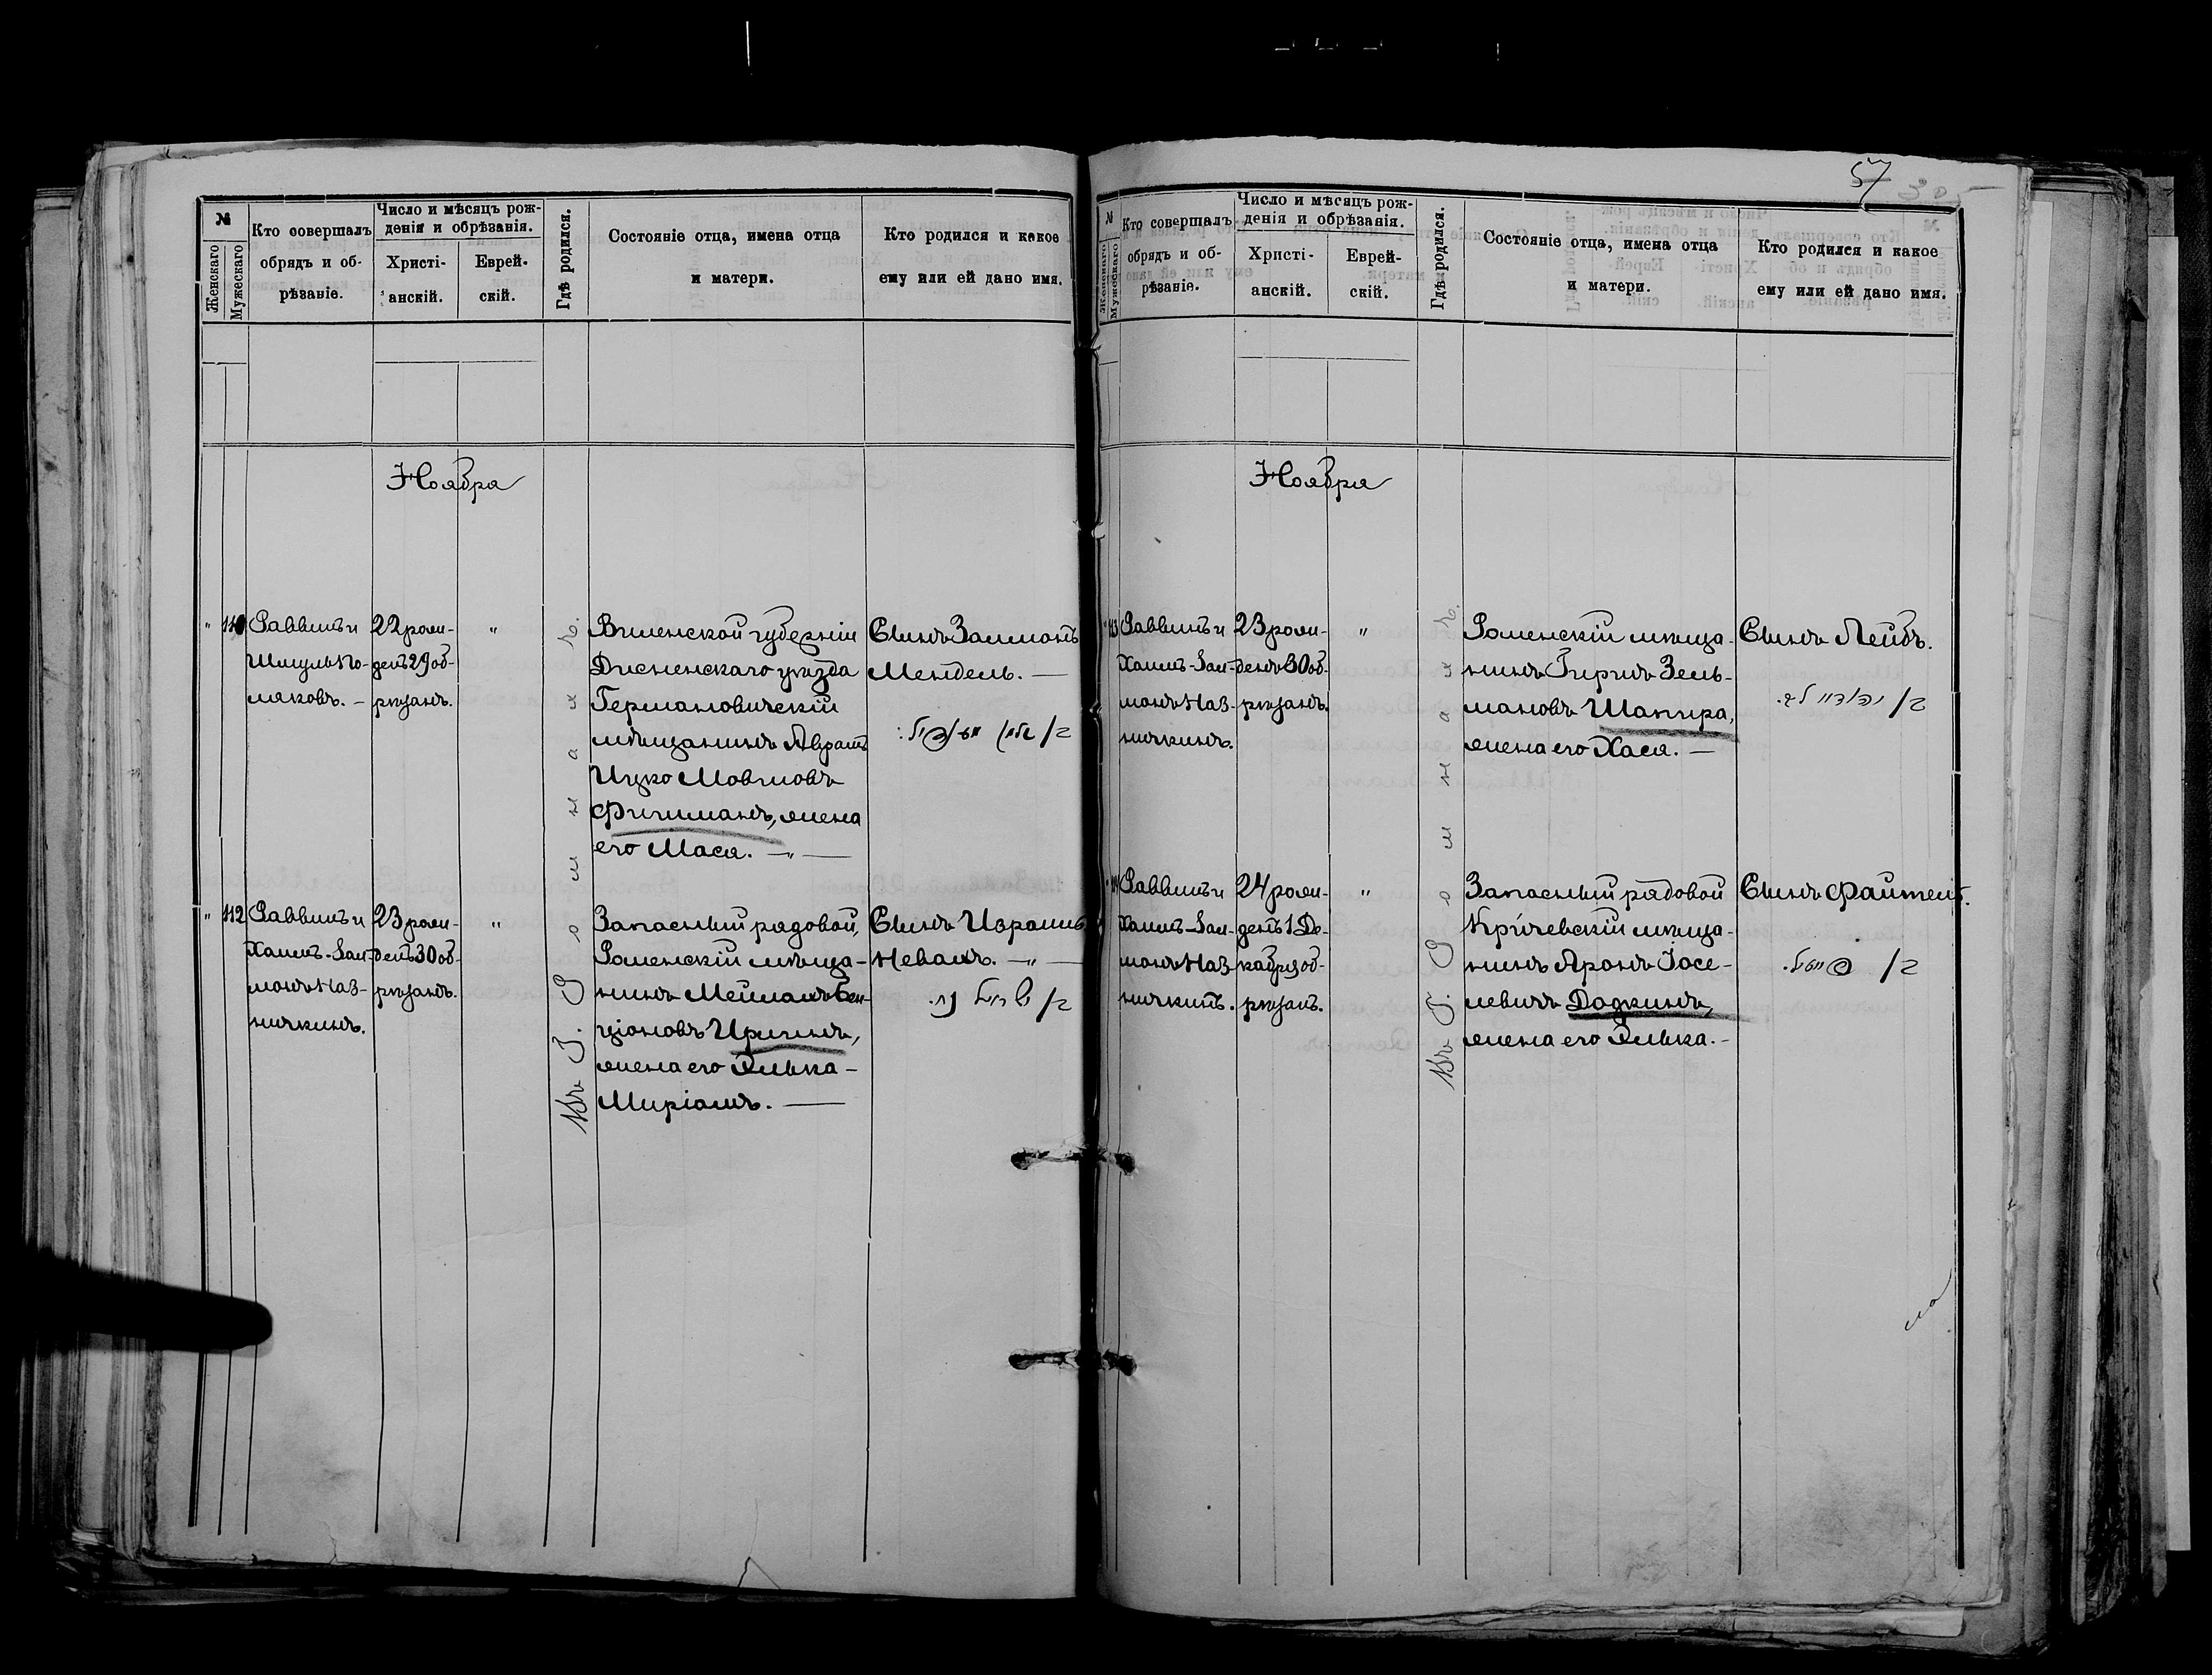 57
№
Женскаго
Мужескаго
Кто совершалъ
обрядъ и об-
рѣзаніе.
Число и мѣсяцъ рож-
денія и обрѣзанія.
Христі-
анскій.
Еврей-
скій.
Гдѣ родился.
Состояніе отца, имена отца
и матери.
Кто родился и какое
ему или ей дано имя.
Ноября
Раввинъ и
Шмуль По-
ляковъ. –
22 роди-
денъ 29 об-
рѣзанъ.
"
Въ Г. Роменахъ.
Виленской губерніи
Дисненскаго уѣзда
Германовичскій
мѣщанинъ Аврамъ
Ицко Мовшовъ
Фишманъ, жена
его Мася. — " —
Сынъ Залманъ
Мендель. —
" 112
Раввинъ и
Хаимъ-Зал-
манъ Наз-
ничкинъ.
23 рож-
денъ 30 об-
рѣзанъ.
"
Запасный рядовой,
Роменскій мѣща-
нинъ Мейлахъ Бен-
ціоновъ Иричинъ,
жена его Рывка-
Миріамъ. —
Сынъ Израиль
Невахъ. — " —
№
Женскаго
Мужескаго
Кто совершалъ
обрядъ и об-
рѣзаніе.
Число и мѣсяцъ рож-
денія и обрѣзанія.
Христі-
анскій.
Еврей-
скій.
Гдѣ родился.
Состояніе отца, имена отца
и матери.
Кто родился и какое
ему или ей дано имя.
Ноября
113
Раввинъ и
Хаимъ-Зал-
манъ Наз-
ничкинъ.
23 рож-
денъ 30 об-
рѣзанъ.
"
Въ Г. Роменахъ.
Роменскій мѣща-
нинъ Гиршъ Зель-
мановъ Шапира,
жена его Хася. —
Сынъ Лейбъ.
Раввинъ и
Хаимъ-Зал-
манъ Наз-
ничкинъ.
24 рож-
денъ 1 Де-
кабря об-
рѣзанъ.
"
Запасный рядовой
Кричевскій мѣща-
нинъ Аронъ Іосе-
левичъ Дадкинъ,
жена его Рывка. –
Сынъ Файтель.